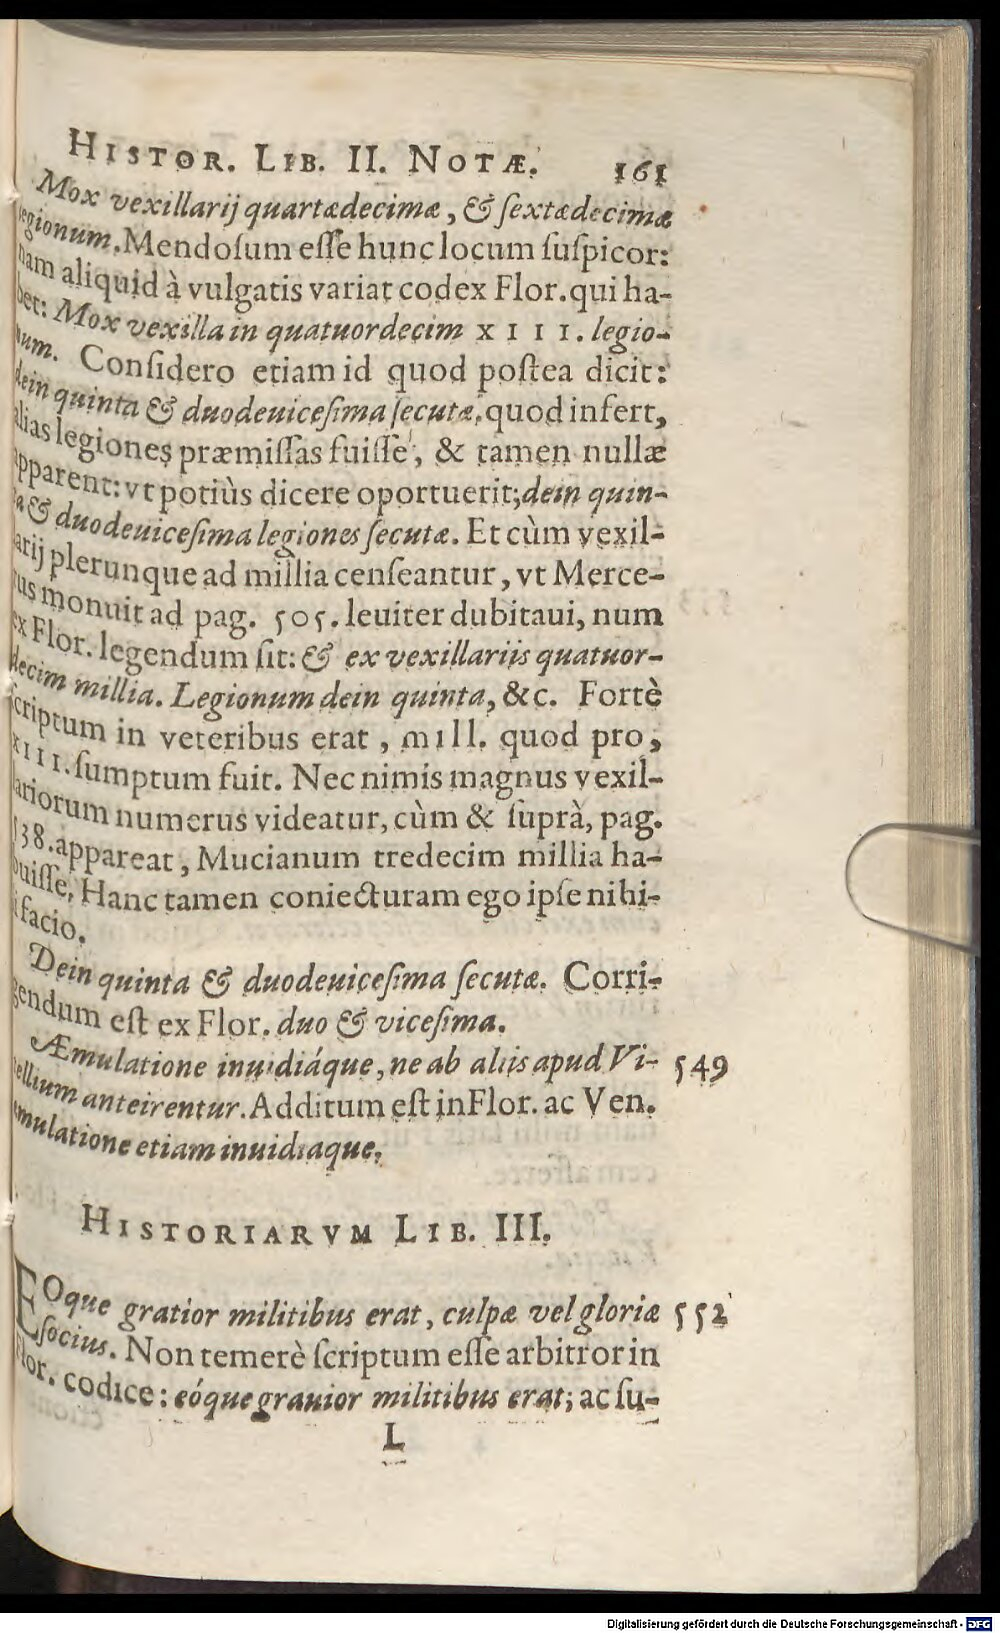 HISTOR. LIB. II. NOTÆ. 161
Mox vexillarij quartædecimæ, & ſextædecimæ
legionum. Mendoſum eſſe hunc locum ſuſpicor:
nam aliquid à vulgatis variat codex Flor. qui ha-
bet: Mox vexilla in quatuordecim XIIII. legio-
num. Conſidero etiam id quod poſtea dicit:
dein quinta & duodeuiceſima ſecutæ. quod infert,
alias legiones præmiſſas fuiſſe, & tamen nullæ
apparent: vt potiùs dicere oportuerit; dein quin-
ta & duodeuiceſima legiones ſecutæ. Et cùm vexil-
larij plerunque ad millia cenſeantur, vt Merce-
rus monuit ad pag. 505. leuiter dubitaui, num
ex Flor. legendum ſit: & ex vexillariis quatuor-
decim millia. Legionum dein quinta, &c. Fortè
ſcriptum in veteribus erat, mill. quod pro,
XIII. ſumptum fuit. Nec nimis magnus vexil-
lariorum numerus videatur, cùm & ſuprà, pag.
538. appareat, Mucianum tredecim millia ha-
buiſſe. Hanc tamen coniecturam ego ipſe nihi-
li facio.
Dein quinta & duodeuiceſima ſecutæ. Corri-
gendum eſt ex Flor. duo & viceſima.
Æmulatione inuidiáque, ne ab aliis apud Vi- 549
tellium anteirentur. Additum eſt in Flor. ac Ven.
æmulatione etiam inuidiaque.
HISTORIARVM LIB. III.
EOque gratior militibus erat, culpæ vel gloriæ 552
ſocius. Non temerè ſcriptum eſſe arbitror in
Flor. codice: eóque grauior militibus erat; ac ſu-
L
Digitalisierung gefördert durch die Deutsche Forschungsgemeinschaft - DFG